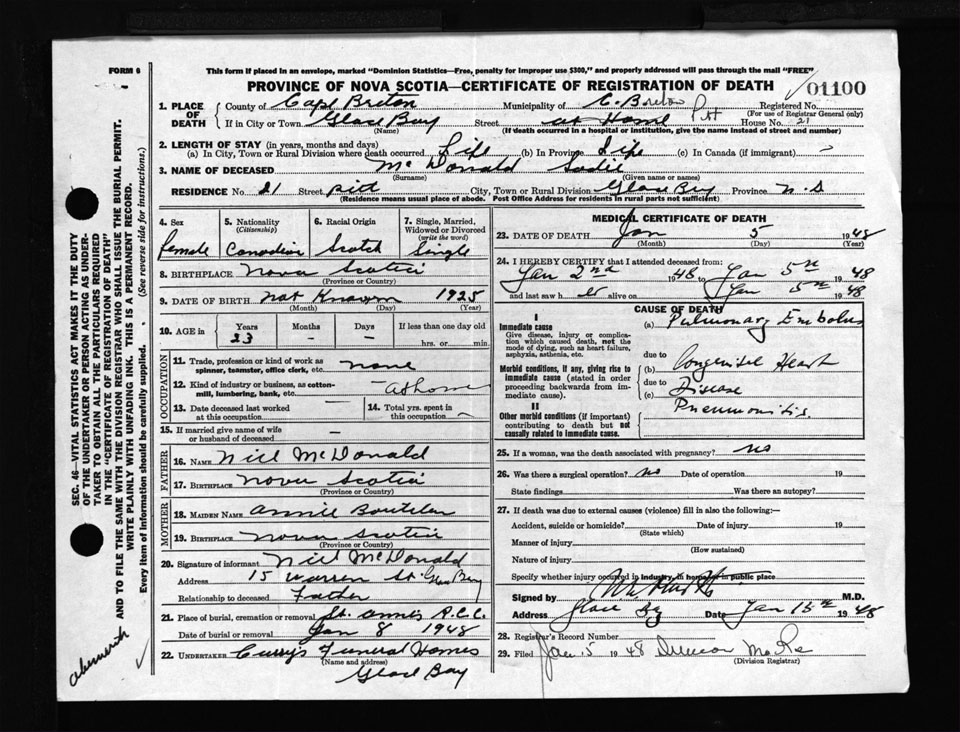 FORM 6
This form if placed in an envelope, marked "Dominion Statistics—Free, penalty for improper use $300," and properly addressed will pass through the mail "FREE"
PROVINCE OF NOVA SCOTIA—CERTIFICATE OF REGISTRATION OF DEATH
01100
1. PLACE OF DEATH County of Cape Breton Municipality of C. Breton Registered No.
(For use of Registrar General only)
If in City or Town Glace Bay Street Pitt at Home House No. 21
(Name) (If death occurred in a hospital or institution, give the name instead of street and number)
2. LENGTH OF STAY (in years, months and days)
(a) In City, Town or Rural Division where death occurred Life (b) In Province Life (c) In Canada (if immigrant)
3. NAME OF DECEASED McDonald Sadie
(Surname) (Given name or names)
RESIDENCE No. 21 Street pitt City, Town or Rural Division Glace Bay Province N.S
(Residence means usual place of abode. Post Office Address for residents in rural parts not sufficient)
4. Sex
female
5. Nationality
(Citizenship)
Canadian
6. Racial Origin
Scotch
7. Single, Married, Widowed or Divorced
(write the word)
Single
8. BIRTHPLACE Nova Scotia
(Province or Country)
9. DATE OF BIRTH not Known 1925
(Month) (Day) (Year)
10. AGE in Years Months Days If less than one day old
23 – – hrs. or min.
OCCUPATION
11. Trade, profession or kind of work as spinner, teamster, office clerk, etc. none
12. Kind of industry or business, as cotton-mill, lumbering, bank, etc. at home
13. Date deceased last worked at this occupation
14. Total yrs. spent in this occupation
15. If married give name of wife or husband of deceased –
FATHER
16. NAME Neil McDonald
17. BIRTHPLACE Nova Scotia
(Province or Country)
MOTHER
18. MAIDEN NAME Annie
19. BIRTHPLACE Nova Scotia
(Province or Country)
20. Signature of informant Neil McDonald
Address 15 Warren St. Glace Bay
Relationship to deceased Father
21. Place of burial, cremation or removal St. Anne's R.C.C.
Date of burial or removal Jan 8 1948
22. UNDERTAKER Curry's Funeral Homes
(Name and address)
Glace Bay
MEDICAL CERTIFICATE OF DEATH
23. DATE OF DEATH Jan 5 1948
(Month) (Day) (Year)
24. I HEREBY CERTIFY that I attended deceased from:
Jan 2nd 1948 to Jan 5th 1948
and last saw her alive on Jan 5th 1948
CAUSE OF DEATH
I
Immediate cause
Give disease, injury or complication which caused death, not the mode of dying, such as heart failure, asphyxia, asthenia, etc.
(a) Pulmonary Embolus
due to
Morbid conditions, if any, giving rise to immediate cause (stated in order proceeding backwards from immediate cause).
(b) Congenital Heart
due to
(c) Disease
II
Other morbid conditions (if important) contributing to death but not causally related to immediate cause.
Pneumonitis
25. If a woman, was the death associated with pregnancy? no
26. Was there a surgical operation? no Date of operation 19
State findings Was there an autopsy?
27. If death was due to external causes (violence) fill in also the following:—
Accident, suicide or homicide? Date of injury 19
(State which)
Manner of injury
(How sustained)
Nature of injury
Specify whether injury occurred in industry, in home or in public place
Signed by M.D.
Address Glace Bay Date Jan 15th 1948
28. Registrar's Record Number
29. Filed Jan. 5 1948 Duncan McRae
(Division Registrar)
SEC. 46—VITAL STATISTICS ACT MAKES IT THE DUTY
OF THE UNDERTAKER OR PERSON ACTING AS UNDER-
TAKER TO OBTAIN ALL THE PARTICULARS REQUIRED
IN THE "CERTIFICATE OF REGISTRATION OF DEATH"
AND TO FILE THE SAME WITH THE DIVISION REGISTRAR WHO SHALL ISSUE THE BURIAL PERMIT.
WRITE PLAINLY WITH UNFADING INK. THIS IS A PERMANENT RECORD.
Every item of information should be carefully supplied. (See reverse side for instructions.)